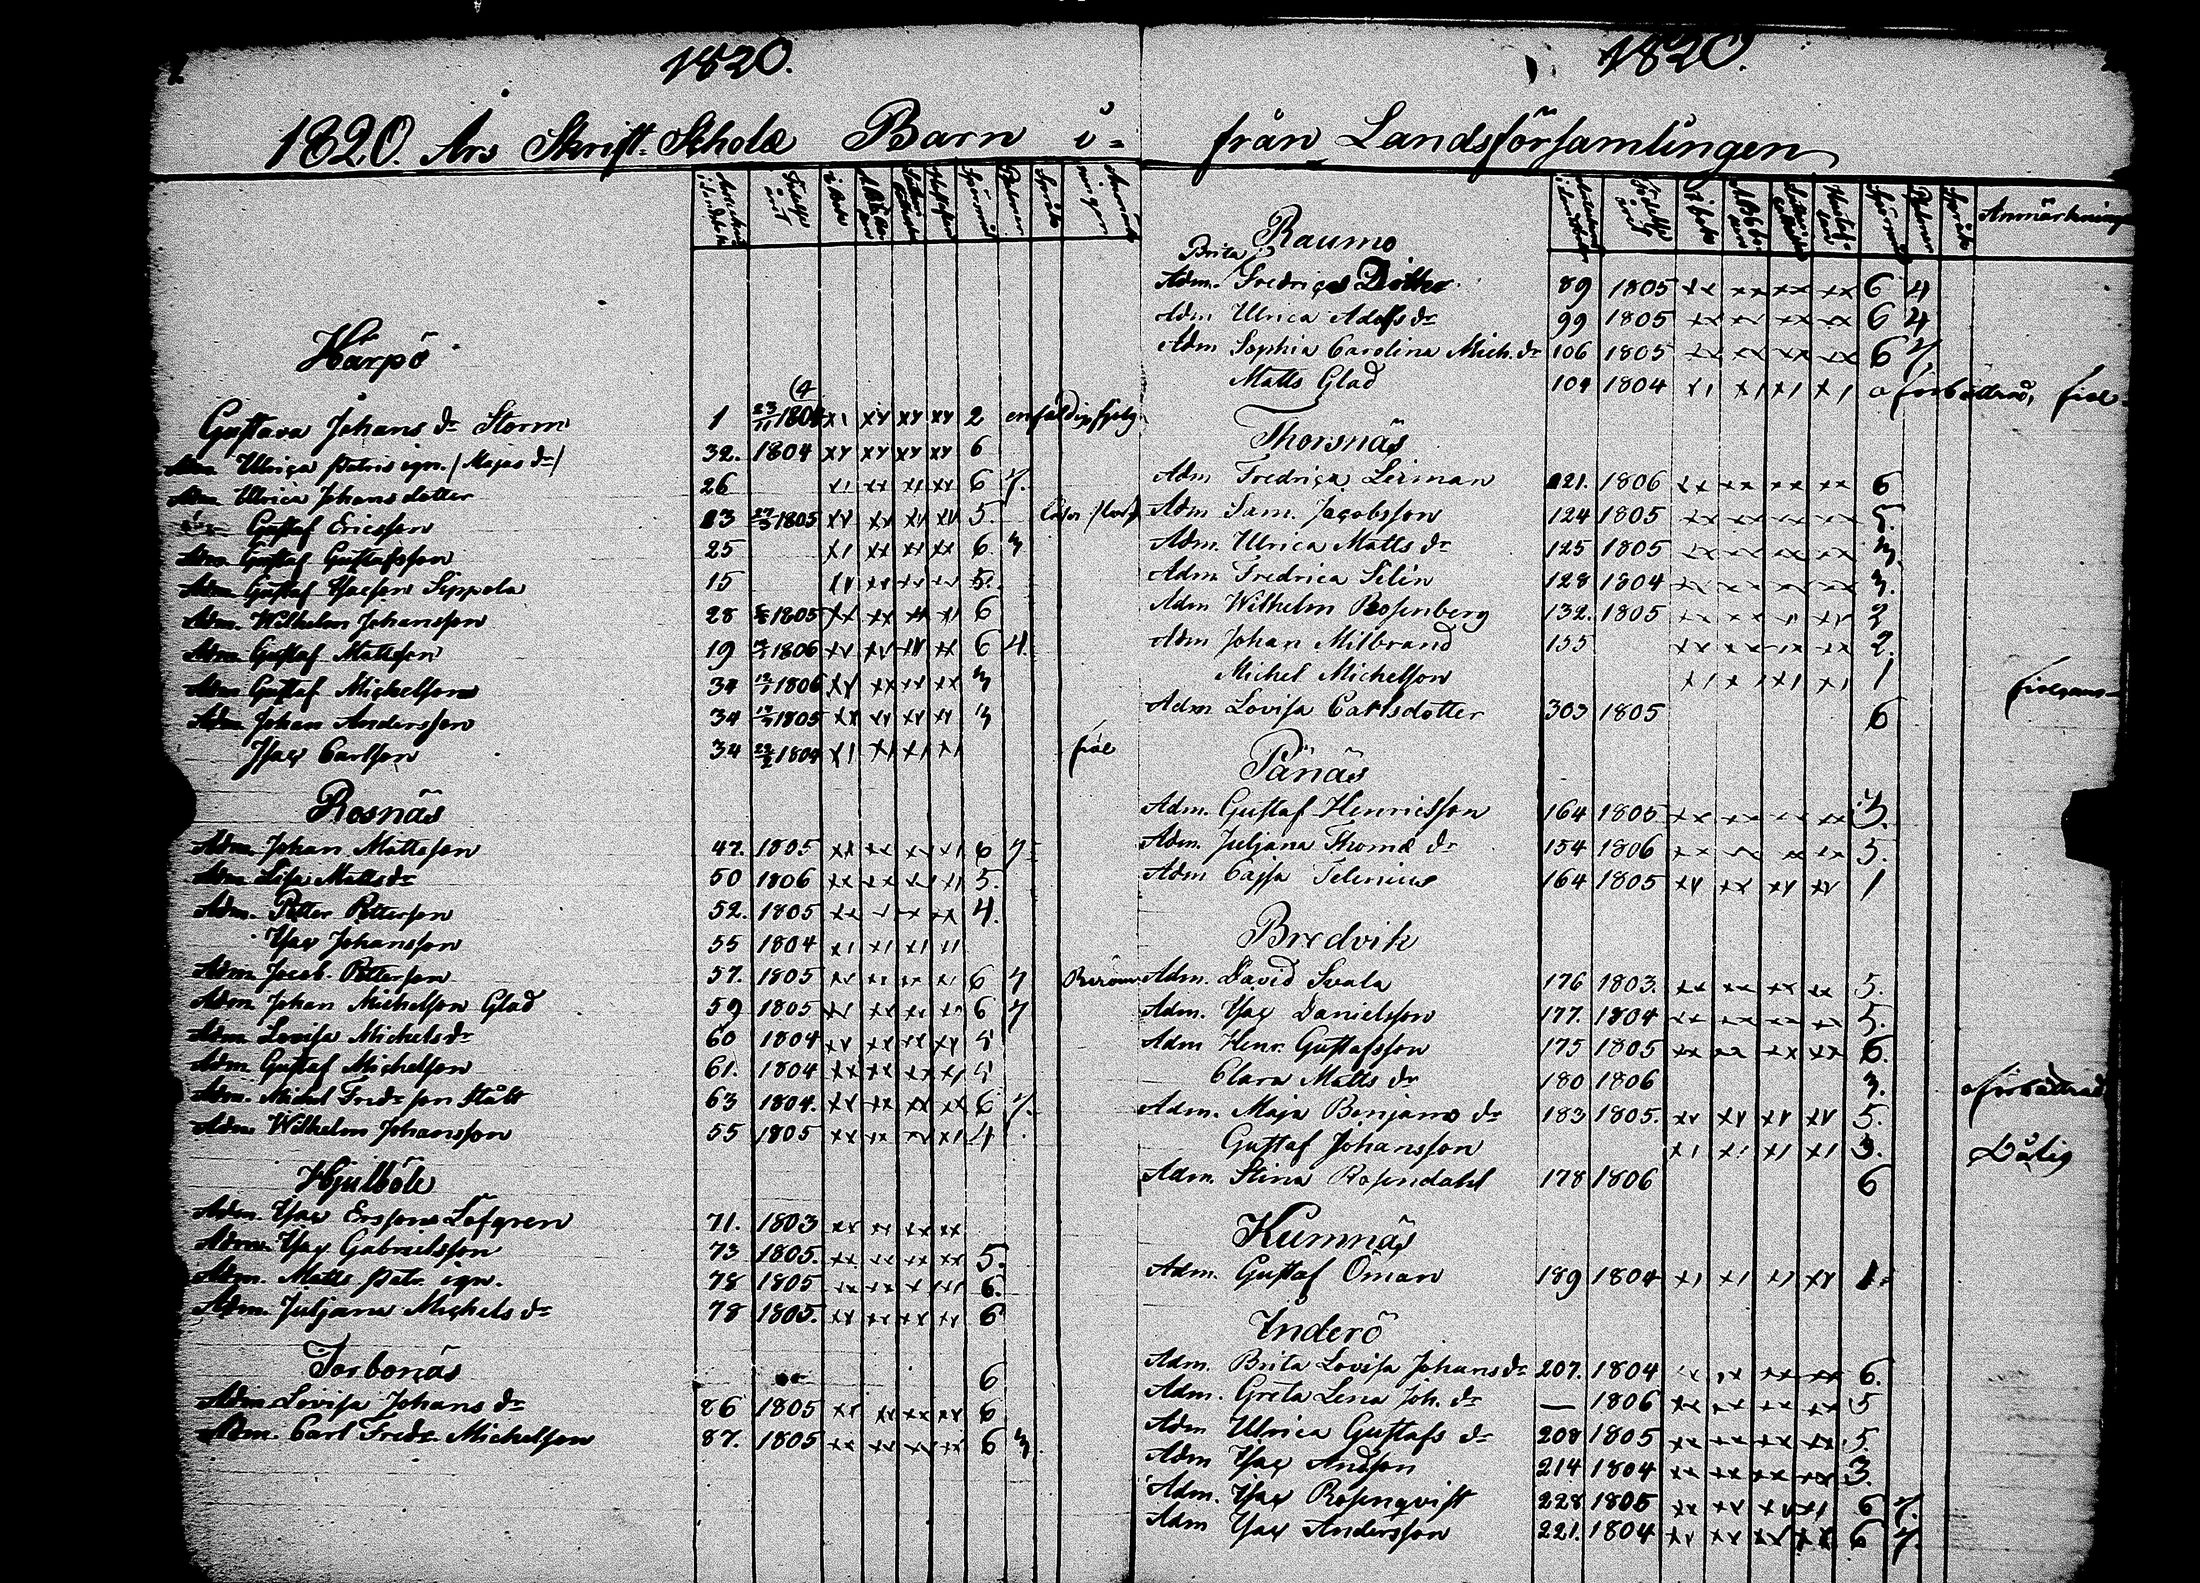 1820.
1820. Års Skrift-Schole Barn i=
Hårpö
Gustava Johans dr Storm 1 23/11 1804 x1 xv xv xv 2 enfäldig
Adm Ulrica Patris ign. /Majas dr/ 32. 1804 xv xv xv xv 6
Adm Ulrica Johans dotter 26 x1 xx x1 xx 6 7.
Gustaf Ericsson 23 1805 xv xx xv xv 5.
Adm Gustaf Gustafsson 25 x1 xx xx xx 6 3
Adm Gustaf Isacson Seppela 15 xv xx xx xx 5.
Adm. Wilhelm Johansson 28 1805 xx xx xx x1 6
Adm Gustaf Mattsson 19 1806 xv xv xv xx 6 4.
Adm Gustaf Michelsson 34 1806 xv xx xx xx 3
Adm Johan Andersson 34 1805 xx xv xx xv 3
Isac Carlson 34 23/2 1804 x1 x1 x1 x1
Rosnäs
Adm Johan Mattsson 47. 1805 xx xx xv x1 6 7
Adm Lisa Matts dr 50 1806 xx xx xx x1 5.
Adm. Petter Petterson 52. 1805 xx xx xx 4.
Isac Johansson 55 1804 x1 x1 x1 11
Adm Jacob Petterson 57. 1805 xv xx xx x1 6 7
Adm Johan Michelson Glad 59 1805 xv xx xx xx 6 7
Adm Lovisa Michels dr 60 1804 xv xx xx xv 4
Adm Gustaf Michelson 61. 1804 xx xx xx x1 4
Adm. Michel Fredr son Stålt 63 1804. xv xx xx xx 6 7.
Adm Wilhelm Johansson 55 1805 xx xx xv x1 4
Hjulböle
Adm. Isac Ersson Löfgren 71. 1803 xv xv xx xx
Adm. Isac Gabrielsson 73 1805. xx xx xx xx 5.
Adm. Matts Patr. ign. 78 1805 xx xx x 11 6.
Adm. Juljana Michels dr 78 1805. xx xx xx xv 6
Torbonäs
6
Adm Lovisa Johans dr 86 1805 xv xv xx xv 6
Adm. Carl Fredr. Michelson 87. 1805 xx xx xx xx 6 3.
1820.
från Landsförsamlingen
Anmärkninga
Raumo
Brita
Adm. Fredrica 89 1805 xx xx xx xx 6 4
Adm Ulrica Adolfs dr 99 1805 xx xx xx xx 6 4
Adm Sophia Carolina Mich. dr 106 1805 xx xx xx xx 6 7.
Matts Glad 104 1804 x1 x1 x1 x1 oförbättrad,
Thorsnäs
Adm Fredrica Lerman 121. 1806 xx xx xx xx 6
Adm Sam. Jacobsson 124 1805 xx xx xx xx 5.
Adm. Ulrica Matts dr 125 1805 xx xx xx xx 3
Adm Fredrica Selin 128 1804 xx xx xx xx 3.
Adm Wilhelm Rosenberg 132. 1805 xx xx xx xv 2
Adm Johan Milbrand 155 xx xx xx xx 2.
Michel Michelson x1 x1 x1 x1 1
Adm Lovisa Carlsdotter 303 1805 6
Pänäs
Adm. Gustaf Henricsson 164 1805 xx xx xx xx 3.
Adm. Juljana Thomæ dr 154 1806 xx xx xx xx 5.
Adm Cajsa Telenius 164 1805 xv xx xv xv 1
Bredvik
Adm. David Svala 176 1803. xx xx xx xx 5.
Adm. Isac Danielsson 177. 1804 xx xx xx xx 5.
Adm Henr. Gustafsson 175 1805 xx xx xx xx 6.
Clara Matts dr 180 1806 3. oförbättrad
Adm. Maja Benjams dr 183 1805. xv xv xv xv 5.
Gustaf Johansson x1 x1 x1 x1 3. Dålig
Adm. Stina Rosendahl 178 1806 6
Kumnäs
Adm. Gustaf Öman 189 1804 x1 x1 x1 xv 1.
Inderö
Adm. Brita Lovisa Johans dr 207. 1804 xx xx xx 6.
Adm. Greta Lena Joh. dr — 1806 xx xx xx xx 5
Adm Ulrica Gustafs dr 208 1805 xx xx xx xx 5.
Adm Isac Andsson 214 1804 xx xx xx xx 3.
Adm. Isac Rosenqvist 228 1805 xx xv xv x1 6 7.
Adm Isac Andersson 221. 1804 xv xv xv xx 6 7.